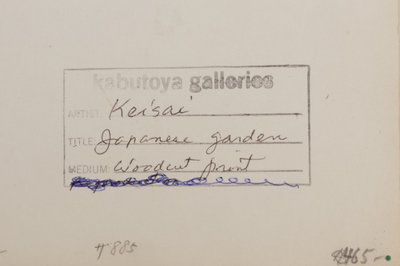 kabutoya galleries
ARTIST: Keisai
TITLE: Japanese garden
MEDIUM: Woodcut print
# 885
465-